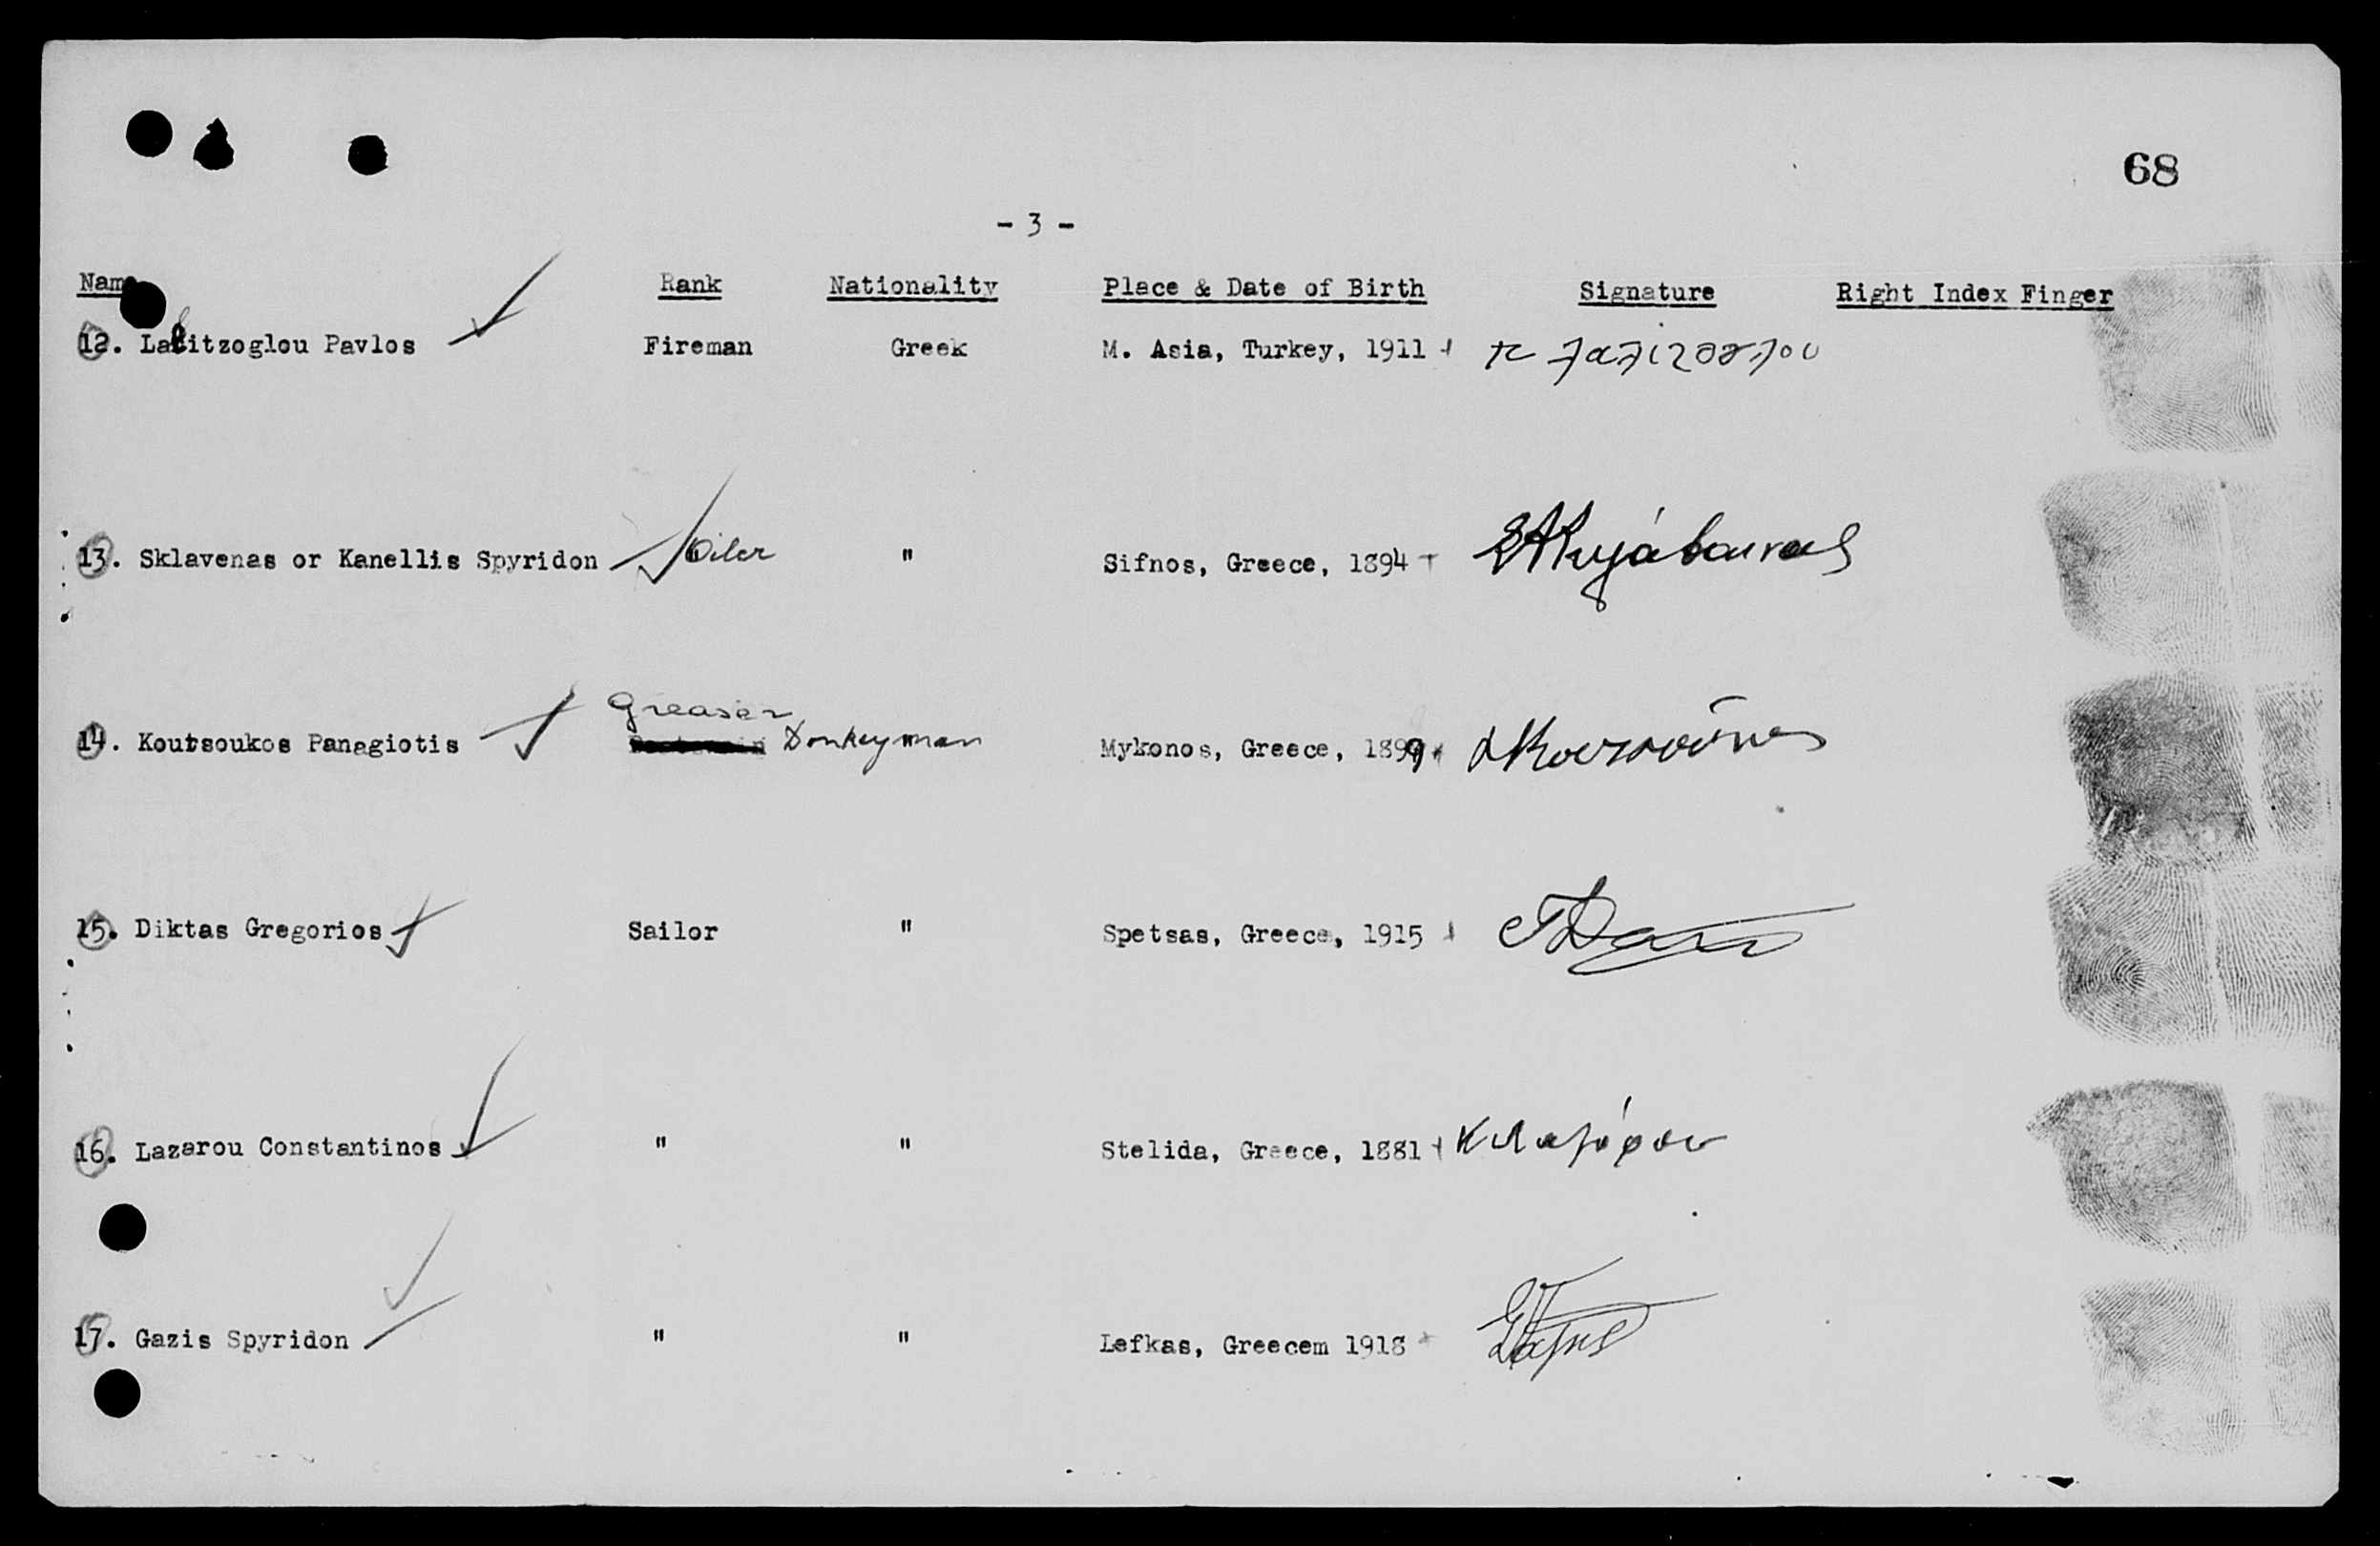 68
- 3 -
Name Rank Nationality Place & Date of Birth Signature Right Index Finger
12. Lalitzoglou Pavlos Fireman Greek M. Asia, Turkey, 1911
13. Sklavenas or Kanellis Spyridon Oiler " Sifnos, Greece, 1894
Greaser
14. Koutsoukos Panagiotis Donkeyman Mykonos, Greece, 1899
15. Diktas Gregorios Sailor " Spetsas, Greece, 1915
16. Lazarou Constantinos " " Stelida, Greece, 1881 Κ Λαζάρου
17. Gazis Spyridon " " Lefkas, Greecem 1918